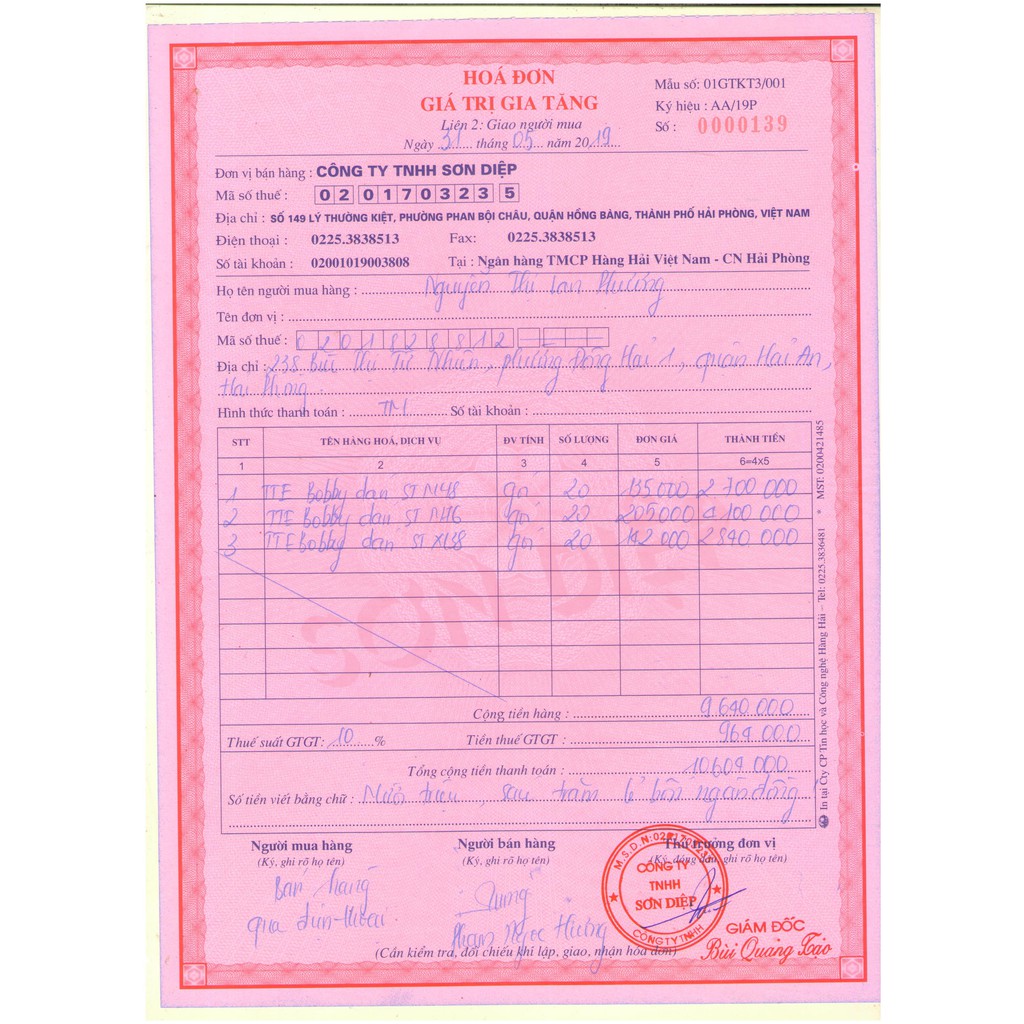 HOÁ ĐƠN
GIÁ TRỊ GIA TĂNG
Liên 2: Giao người mua
Ngày 31 tháng 05 năm 2019
Mẫu số: 01GTKT3/001
Ký hiệu : AA/19P
Số : 0000139
Đơn vị bán hàng : CÔNG TY TNHH SƠN DIỆP
Mã số thuế : 0201703235
Địa chỉ : SỐ 149 LÝ THƯỜNG KIỆT, PHƯỜNG PHAN BỘI CHÂU, QUẬN HỒNG BÀNG, THÀNH PHỐ HẢI PHÒNG, VIỆT NAM
Điện thoại : 0225.3838513 Fax: 0225.3838513
Số tài khoản : 02001019003808 Tại : Ngân hàng TMCP Hàng Hải Việt Nam - CN Hải Phòng
Họ tên người mua hàng : Nguyễn Thị Lan Phương
Tên đơn vị :
Mã số thuế : 0201828812
Địa chỉ : 238 Bùi Thị Từ Nhiên, phường Đông Hải 1, quận Hải An,
Hải Phòng
Hình thức thanh toán : TM Số tài khoản :
STT TÊN HÀNG HOÁ, DỊCH VỤ ĐV TÍNH SỐ LƯỢNG ĐƠN GIÁ THÀNH TIỀN
1 2 3 4 5 6=4x5
1 TTE Bobby dán ST M48 gói 20 135 000 2 700 000
2 TTE Bobby dán ST M76 gói 20 205 000 4 100 000
3 TTE Bobby dán ST XL38 gói 20 142 000 2 840 000
SƠN DIỆP
Cộng tiền hàng : 9 640 000
Thuế suất GTGT: 10 % Tiền thuế GTGT : 964 000
Tổng cộng tiền thanh toán : 10 604 000
Số tiền viết bằng chữ : Mười triệu, sáu trăm lẻ bốn ngàn đồng
Người mua hàng Người bán hàng Thủ trưởng đơn vị
(Ký, ghi rõ họ tên) (Ký, ghi rõ họ tên) (Ký, đóng dấu, ghi rõ họ tên)
Bán hàng
qua điện thoại
Phạm Ngọc Hường
CÔNG TY
TNHH
SƠN DIỆP
GIÁM ĐỐC
Bùi Quang Tạo
(Cần kiểm tra, đối chiếu khi lập, giao, nhận hoá đơn)
In tại Cty CP Tin học và Công nghệ Hàng Hải – Tel: 0225.3836481 * MST: 0200421485